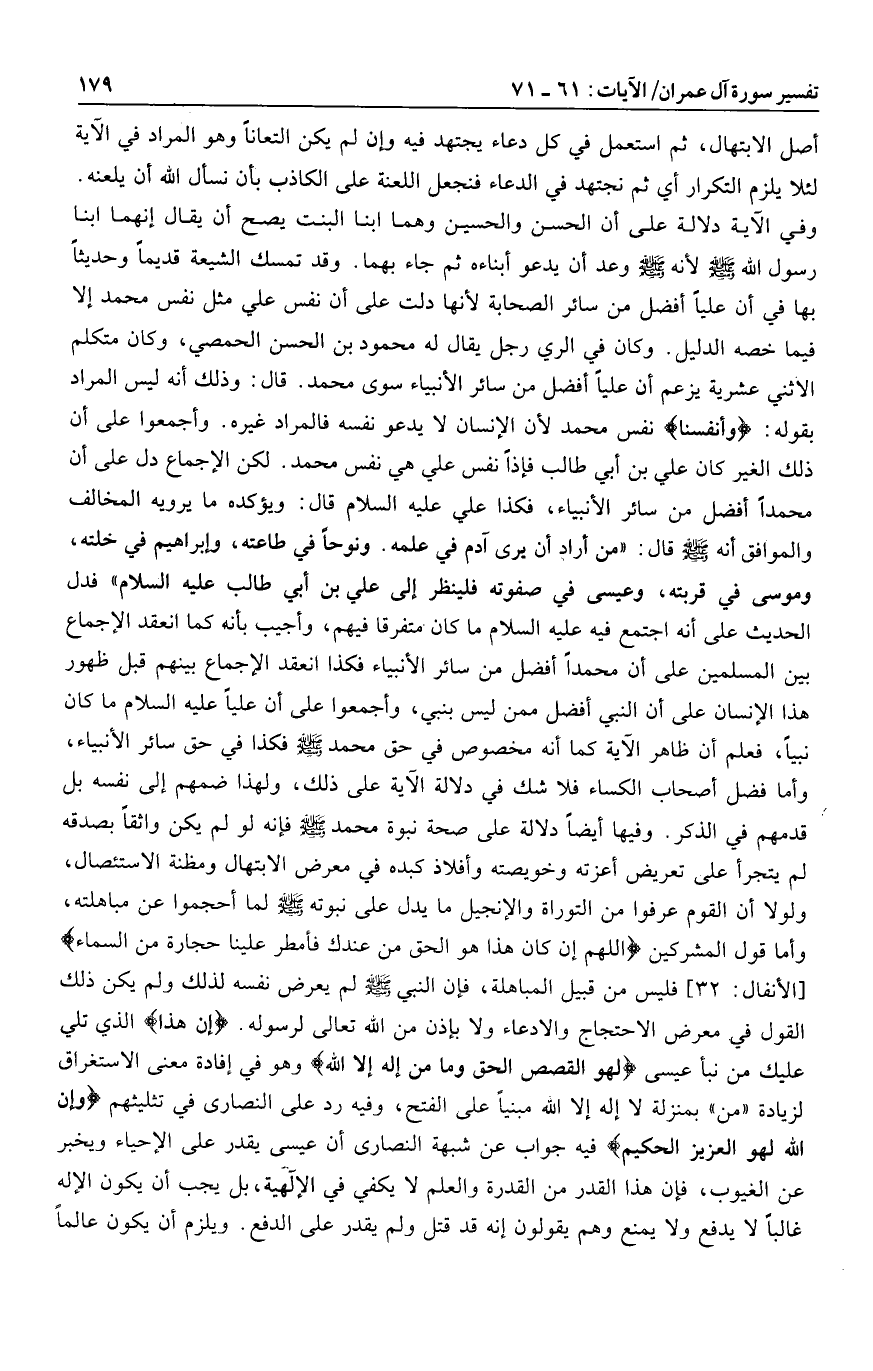 تفسير سورة آل عمران/ الآيات: ٦١ ـ ٧١
١٧٩
أصل الابتهال، ثم استعمل في كل دعاء يجتهد فيه وإن لم يكن التعاناً وهو المراد في الآية
لئلا يلزم التكرار أي ثم نجتهد في الدعاء فنجعل اللعنة على الكاذب بأن نسأل الله أن يلعنه.
وفي الآية دلالة على أن الحسن والحسين وهما ابنا البنت يصح أن يقال إنهما ابنا
رسول الله ﷺ لأنه ﷺ وعد أن يدعو أبناءه ثم جاء بهما. وقد تمسك الشيعة قديماً وحديثاً
بها في أن علياً أفضل من سائر الصحابة لأنها دلت على أن نفس علي مثل نفس محمد إلا
فيما خصه الدليل. وكان في الري رجل يقال له محمود بن الحسن الحمصي، وكان متكلم
الاثني عشرية يزعم أن علياً أفضل من سائر الأنبياء سوى محمد. قال: وذلك أنه ليس المراد
بقوله: ﴿وأنفسنا﴾ نفس محمد لأن الإنسان لا يدعو نفسه فالمراد غيره. وأجمعوا على أن
ذلك الغير كان علي بن أبي طالب فإذاً نفس علي هي نفس محمد. لكن الإجماع دل على أن
محمداً أفضل من سائر الأنبياء، فكذا علي عليه السلام قال: ويؤكده ما يرويه المخالف
والموافق أنه ﷺ قال: «من أراد أن يرى آدم في علمه. ونوحاً في طاعته، وإبراهيم في خلته،
وموسى في قربته، وعيسى في صفوته فلينظر إلى علي بن أبي طالب عليه السلام» فدل
الحديث على أنه اجتمع فيه عليه السلام ما كان متفرقا فيهم، وأجيب بأنه كما انعقد الإجماع
بين المسلمين على أن محمداً أفضل من سائر الأنبياء فكذا انعقد الإجماع بينهم قبل ظهور
هذا الإنسان على أن النبي أفضل ممن ليس بنبي، وأجمعوا على أن علياً عليه السلام ما كان
نبياً، فعلم أن ظاهر الآية كما أنه مخصوص في حق محمد ﷺ فكذا في حق سائر الأنبياء،
وأما فضل أصحاب الكساء فلا شك في دلالة الآية على ذلك، ولهذا ضمهم إلى نفسه بل
قدمهم في الذكر. وفيها أيضاً دلالة على صحة نبوة محمد ﷺ فإنه لو لم يكن واثقاً بصدقه
لم يتجرأ على تعريض أعزته وخويصته وأفلاذ كبده في معرض الابتهال ومظنة الاستئصال،
ولولا أن القوم عرفوا من التوراة والإنجيل ما يدل على نبوته ﷺ لما أحجموا عن مباهلته،
وأما قول المشركين ﴿اللهم إن كان هذا هو الحق من عندك فأمطر علينا حجارة من السماء﴾
[الأنفال: ٣٢] فليس من قبيل المباهلة، فإن النبي ﷺ لم يعرض نفسه لذلك ولم يكن ذلك
القول في معرض الاحتجاج والادعاء ولا بإذن من الله تعالى لرسوله. ﴿إن هذا﴾ الذي تلي
عليك من نبأ عيسى ﴿لهو القصص الحق وما من إله إلا الله﴾ وهو في إفادة معنى الاستغراق
لزيادة «من» بمنزلة لا إله إلا الله مبنياً على الفتح، وفيه رد على النصارى في تثليثهم ﴿وإن
الله لهو العزيز الحكيم﴾ فيه جواب عن شبهة النصارى أن عيسى يقدر على الإحياء ويخبر
عن الغيوب، فإن هذا القدر من القدرة والعلم لا يكفي في الإلٰهية، بل يجب أن يكون الإله
غالباً لا يدفع ولا يمنع وهم يقولون إنه قد قتل ولم يقدر على الدفع. ويلزم أن يكون عالماً